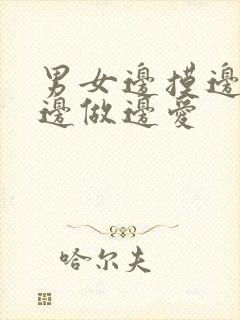 男女邊摸邊
邊做邊愛
哈尔夫